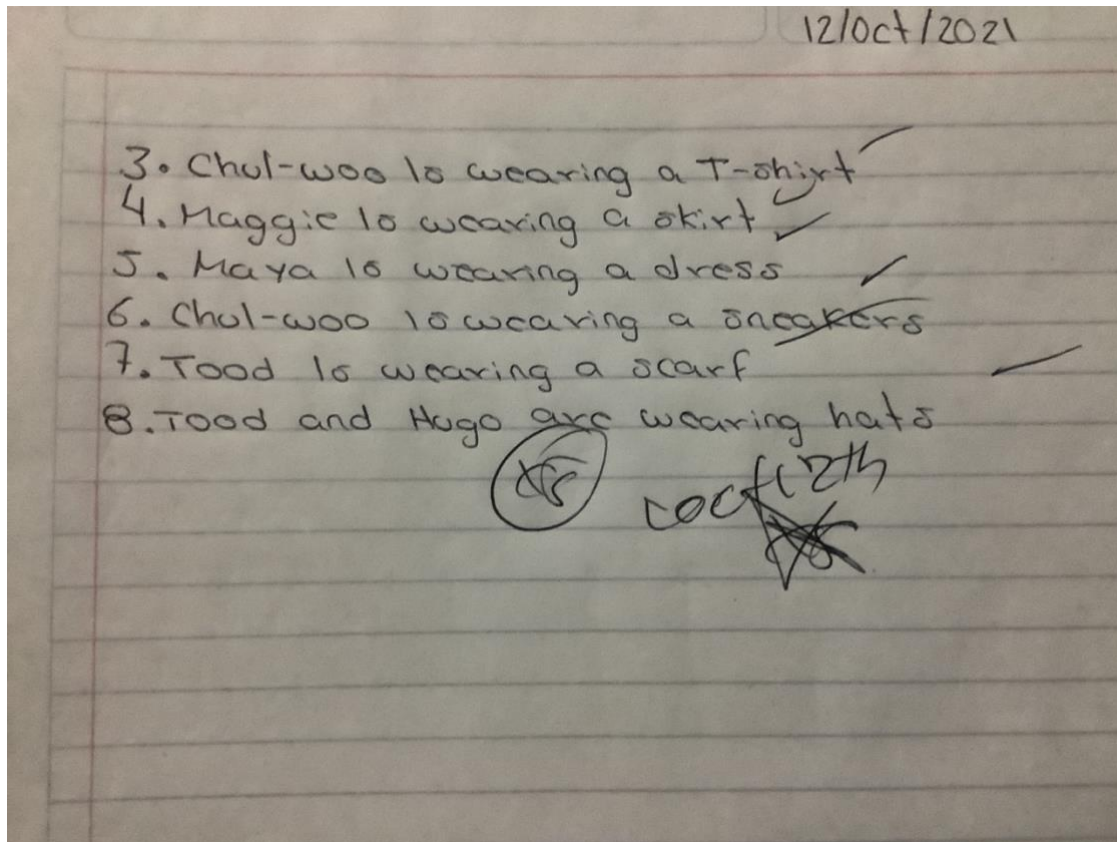 12/Oct/2021
3. Chul-woo is wearing a T-shirt
4. Maggie is wearing a skirt
5. Maya is wearing a dress
6. Chul-woo is wearing a sneakers
7. Tood is wearing a scarf
8. Tood and Hugo are wearing hats